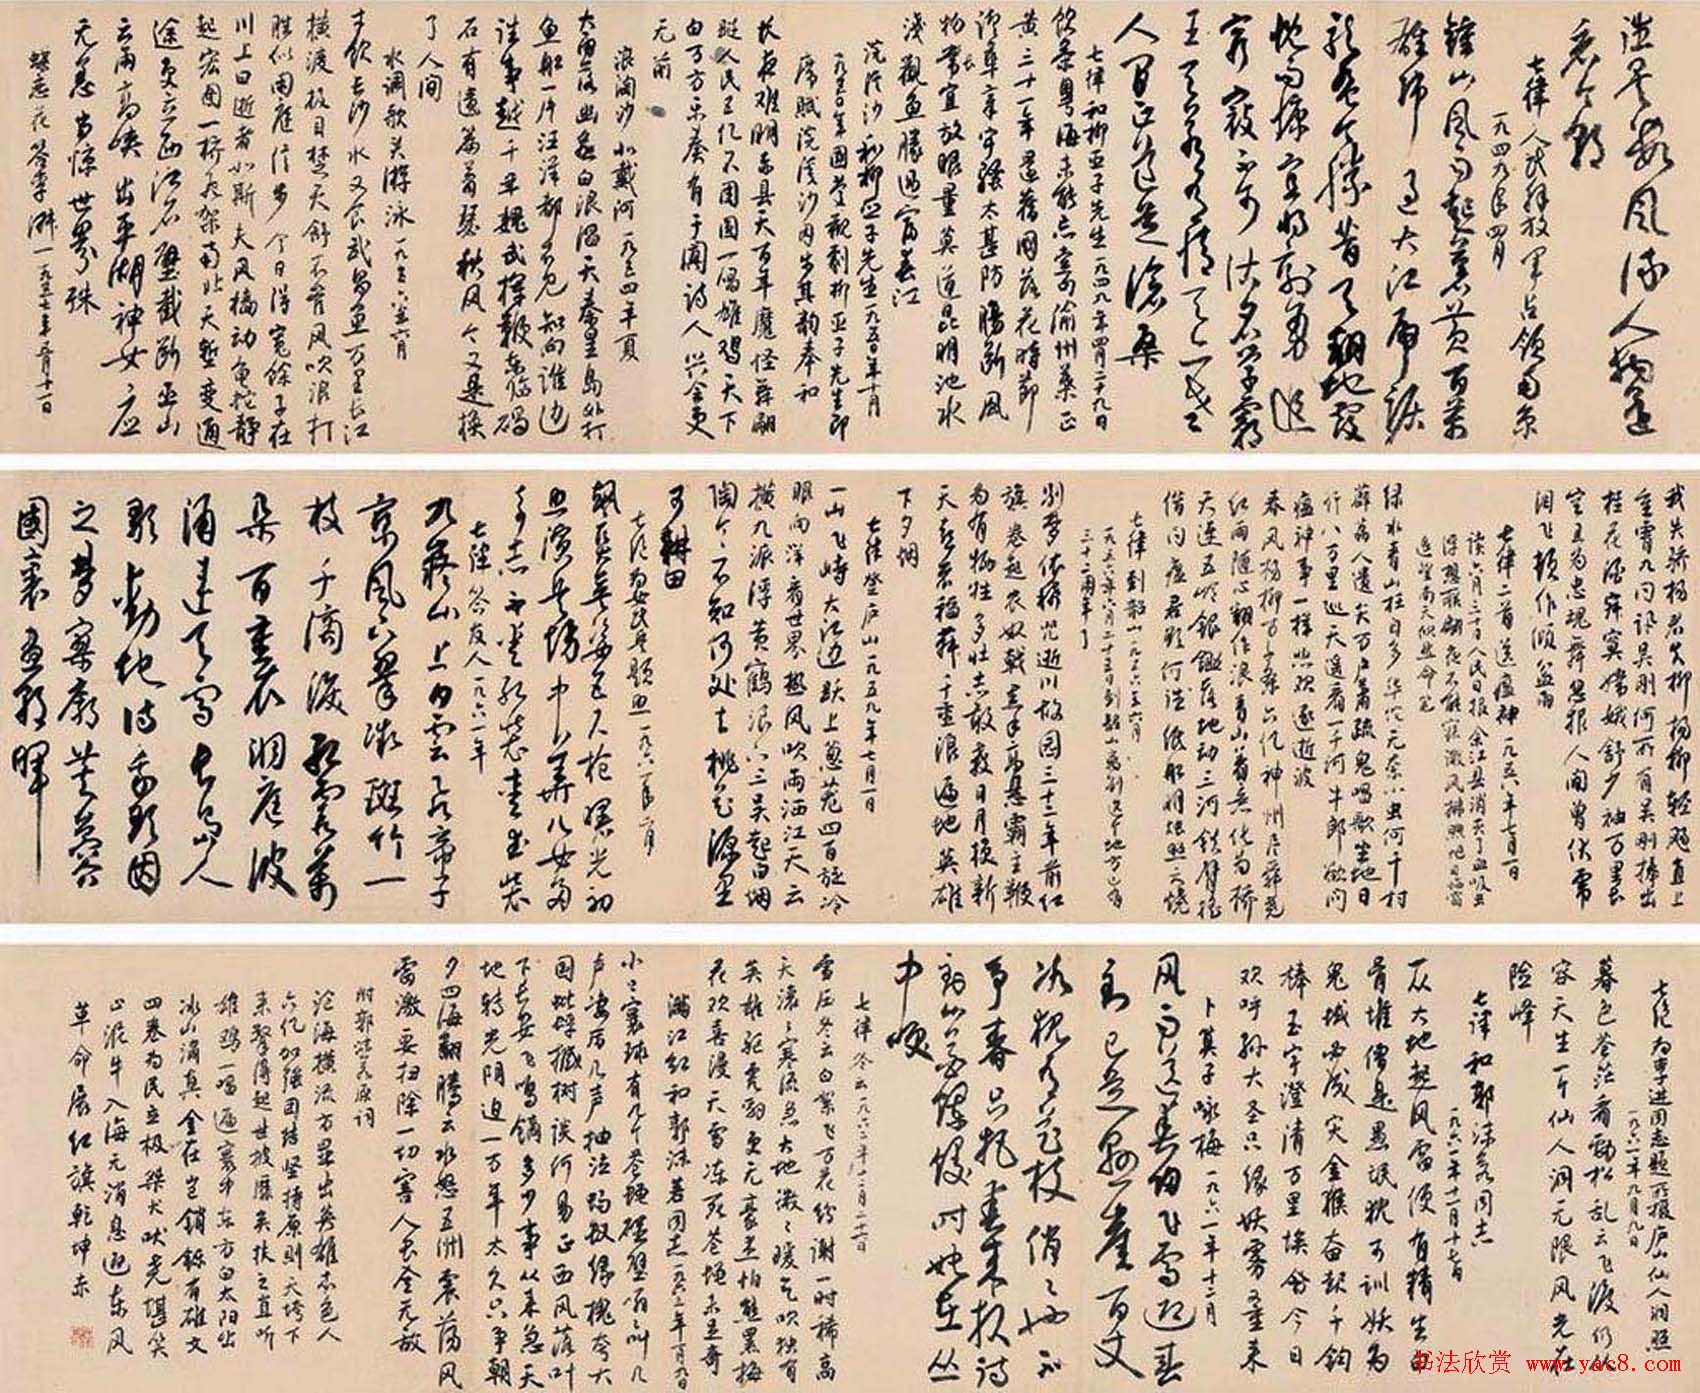 数风流人物还
看今朝
七律 人民解放军占领南京
一九四九年四月
钟山风雨起苍黄百万
雄师过大江虎踞
龙盘今胜昔天翻地覆
慨而慷宜将剩勇追
穷寇不可沽名学霸
王天若有情天亦老
人间正道是沧桑
七律 和柳亚子先生 一九四九年四月二十九日
饮茶粤海未能忘索句渝州叶正
黄三十一年还旧国落花时节
读华章牢骚太盛防肠断风
物长宜放眼量莫道昆明池水
浅观鱼胜过富春江
浣溪沙 和柳亚子先生 一九五〇年十月
一九五〇年国庆观剧柳亚子先生即
席赋浣溪沙因步其韵奉和
长夜难明赤县天百年魔怪舞翩
跹人民五亿不团圆一唱雄鸡天下
白万方乐奏有于阗诗人兴会更
无前
浪淘沙 北戴河 一九五四年夏
大雨落幽燕白浪滔天秦皇岛外打
鱼船一片汪洋都不见知向谁边
往事越千年魏武挥鞭东临碣
石有遗篇萧瑟秋风今又是换
了人间
水调歌头 游泳 一九五六年六月
才饮长沙水又食武昌鱼万里长江
横渡极目楚天舒不管风吹浪打
胜似闲庭信步今日得宽馀子在
川上曰逝者如斯夫风樯动龟蛇静
起宏图一桥飞架南北天堑变通
途更立西江石壁截断巫山
云雨高峡出平湖神女应
无恙当惊世界殊
蝶恋花 答李淑一 一九五七年五月十一日
我失骄杨君失柳杨柳轻飏直上
重霄九问讯吴刚何所有吴刚捧出
桂花酒寂寞嫦娥舒广袖万里长
空且为忠魂舞忽报人间曾伏虎
泪飞顿作倾盆雨
七律二首 送瘟神 一九五八年七月一日
读六月三十日人民日报余江县消灭了血吸虫
浮想联翩夜不能寐微风拂煦旭日临窗
遥望南天欣然命笔
绿水青山枉自多华佗无奈小虫何千村
薜荔人遗矢万户萧疏鬼唱歌坐地日
行八万里巡天遥看一千河牛郎欲问
瘟神事一样悲欢逐逝波
春风杨柳万千条六亿神州尽舜尧
红雨随心翻作浪青山着意化为桥
天连五岭银锄落地动三河铁臂摇
借问瘟君欲何往纸船明烛照天烧
七律 到韶山 一九五九年六月
一九五九年六月二十五日到韶山离别这个地方已有
三十二周年了
别梦依稀咒逝川故园三十二年前红
旗卷起农奴戟黑手高悬霸主鞭
为有牺牲多壮志敢教日月换新
天喜看稻菽千重浪遍地英雄
下夕烟
七律 登庐山 一九五九年七月一日
一山飞峙大江边跃上葱茏四百旋冷
眼向洋看世界热风吹雨洒江天云
横九派浮黄鹤浪下三吴起白烟
陶令不知何处去桃花源里
可耕田
七绝 为女民兵题照 一九六一年二月
飒爽英姿五尺枪曙光初
照演兵场中华儿女多
奇志不爱红装爱武装
七律 答友人 一九六一年
九嶷山上白云飞帝子
乘风下翠微斑竹一
枝千滴泪红霞万
朵百重衣洞庭波
涌连天雪长岛人
歌动地诗我欲因
之梦寥廓芙蓉
国里尽朝晖
七绝 为李进同志题所摄庐山仙人洞照
一九六一年九月九日
暮色苍茫看劲松乱云飞渡仍从
容天生一个仙人洞无限风光在
险峰
七律 和郭沫若同志
一九六一年十一月十七日
一从大地起风雷便有精生白
骨堆僧是愚氓犹可训妖为
鬼蜮必成灾金猴奋起千钧
棒玉宇澄清万里埃今日
欢呼孙大圣只缘妖雾又重来
卜算子 咏梅 一九六一年十二月
风雨送春归飞雪迎春
到已是悬崖百丈
冰犹有花枝俏俏也不
争春只把春来报待
到山花烂漫时她在丛
中笑
七律 冬云 一九六二年十二月二十六日
雪压冬云白絮飞万花纷谢一时稀高
天滚滚寒流急大地微微暖气吹独有
英雄驱虎豹更无豪杰怕熊罴梅
花欢喜漫天雪冻死苍蝇未足奇
满江红 和郭沫若同志 一九六三年一月九日
小小寰球有几个苍蝇碰壁嗡嗡叫几
声凄厉几声抽泣蚂蚁缘槐夸大
国蚍蜉撼树谈何易正西风落叶
下长安飞鸣镝多少事从来急天
地转光阴迫一万年太久只争朝
夕四海翻腾云水怒五洲震荡风
雷激要扫除一切害人虫全无敌
附郭沫若原词
沧海横流方显出英雄本色人
六亿加强团结坚持原则天垮下
来擎得起世披靡矣扶之直听
雄鸡一唱遍寰中东方白太阳出
冰山滴真金在岂销铄有雄文
四卷为民立极桀犬吠尧堪笑
止泥牛入海无消息迎东风
革命展红旗乾坤赤
书法欣赏 www.yac8.com